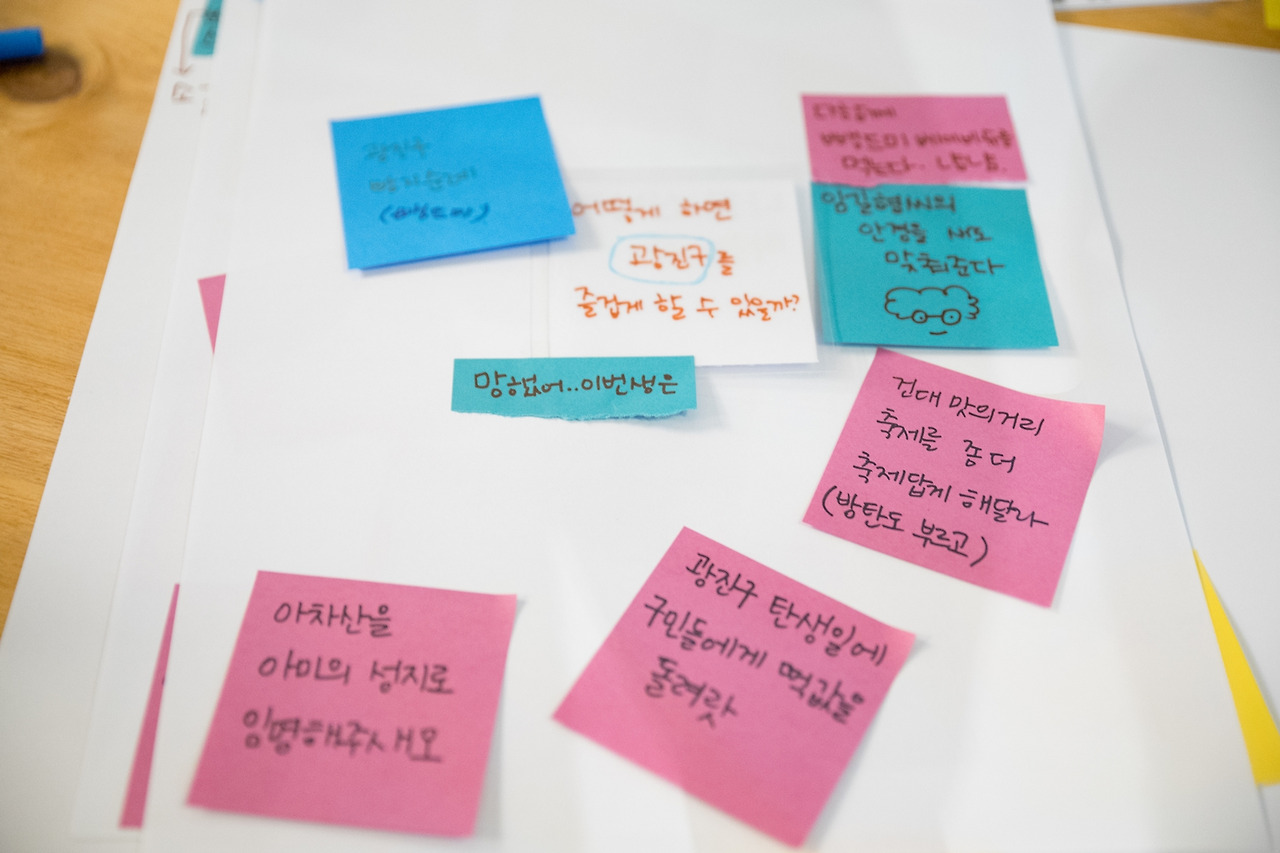 광진구
(빵드미)
어떻게 하면
광진구를
즐겁게 할 수 있을까?
빵드미 베베비쥬를
먹는다. 냠냠.
임길현씨의
안경을 새로
맞춰준다
망했어..이번생은
건대 맛의거리
축제를 좀 더
축제답게 해달라
(방탄도 부르고)
광진구 탄생일에
구민들에게 떡값을
돌려랏
아차산을
아미의 성지로
임명해주시새오